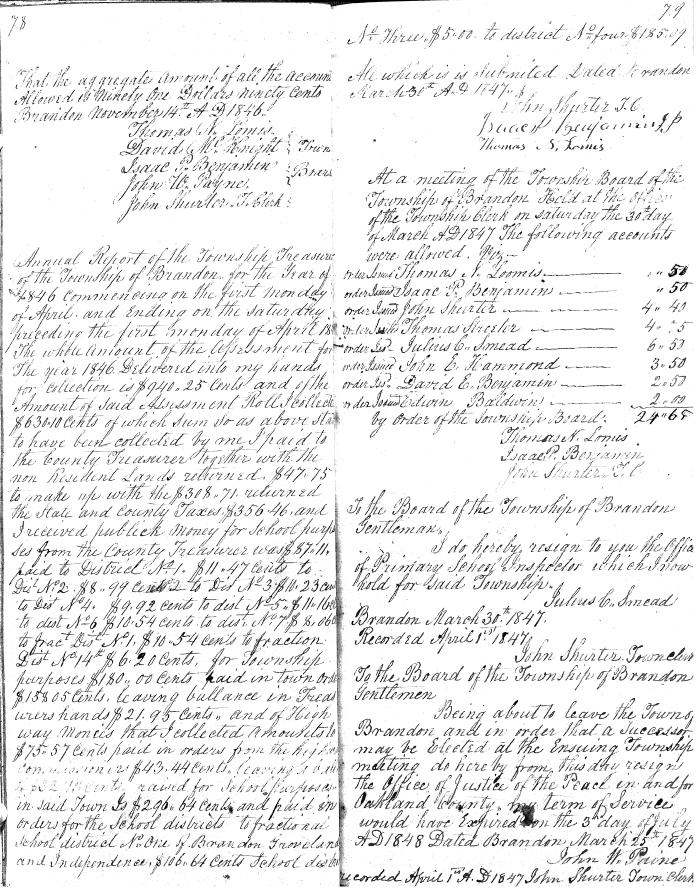 78
That the aggregate Amount of all the Accounts
Allowed is Ninety One Dollars ninety Cents
Brandon November 14th A D 1846.
Thomas N. Lomis
David Mc Knight Town
Isaac P. Benjamin
John W. Payne
John Shurter T. Clerk
Annual Report of the Township Treasurer
of the Township of Brandon for the Year of
1846 commencing on the first monday
of April and Ending on the Saturday
preceding the first monday of April
The whole Amount of the Assessment for
The year 1846 Delivered into my hands
for collection is $940.25 Cents and of the
Amount of Said Assessment Roll I collected
$630.10 Cents of which Sum So as above
to have been collected by me I paid to
the County Treasurer together with the
non Resident Lands returned $47.75
to make up with the $308.71 returned
the State and County Taxes $356.46 and
I received publick Money for School purpo
ses from the County Treasurer was $87.11
paid to District No 1. $11.47 Cents to
Dist No 2 $8.99 Cents to Dis No 3 $10.23
to Dis No 4. $9.92 Cents to dist No 5
to dist No 6 $10.54 Cents to dis. No 7 $8.06
to fract Dist No 1, $10.54 Cents to fraction
Dist No 14th $6.20 Cents, for Township
purposes $180.00 Cents paid in town Orders
$158.05 Cents, leaving ballance in Treas
urers hands $21.95 Cents and of High
way Monies that I collected Amounts to
$75.57 Cents paid in orders from the highway
commissioners $43.44 Cents, leaving
raised for School purposes
in said Town Is $296.64 Cents and paid in
orders for the School districts to fractional
School district No. One of Brandon Groveland
and Independence, $106.64 Cents School
79
No Three, $5.00 to district No four $185.09
All which is is Submited Dated Brandon
March 30th A.D 1847.
John Shurter T.C.
Isaac P. Benjamin J.P.
Thomas N. Lomis
At a meeting of the Township Board of the
Township of Brandon Held at the Office
of the Township Clerk on saturday the 30th day
of March AD 1847 The following accounts
were allowed. Viz
order Issued Thomas N. Loomis 50
order Issued Isaac P. Benjamin 50
order Issued John Shurter 4.40
order Thomas Streeter 4
order Iss. Julius C. Smead 6.50
order Issued John E. Hammond 3.50
order Iss. David C. Benjamin 2.50
order Issued Edwin Baldwin 2.00
by Order of the Township Board: 24.65
Thomas N. Lomis
Isaac P. Benjamin
John Shurter T.C
To the Board of the Township of Brandon
Gentleman,
I do hereby resign to you the Office
of Primary School Inspector which I now
hold for said Township.
Julius C. Smead
Brandon March 30.th 1847.
Recorded April 1st 1847
John Shurter Town clerk
To the Board of the Township of Brandon
Gentlemen
Being about to leave the Town of
Brandon and in order that a Successor
may be Elected at the Ensuing Township
meeting do here by from this day resign
the Office of Justice of the Peace in and for
Oakland County, my term of Service
would have Expired on the 3rd day of July
AD 1848 Dated Brandon March 25th 1847
John W. Paine
recorded April 1st A.D 1847 John Shurter Town Clerk